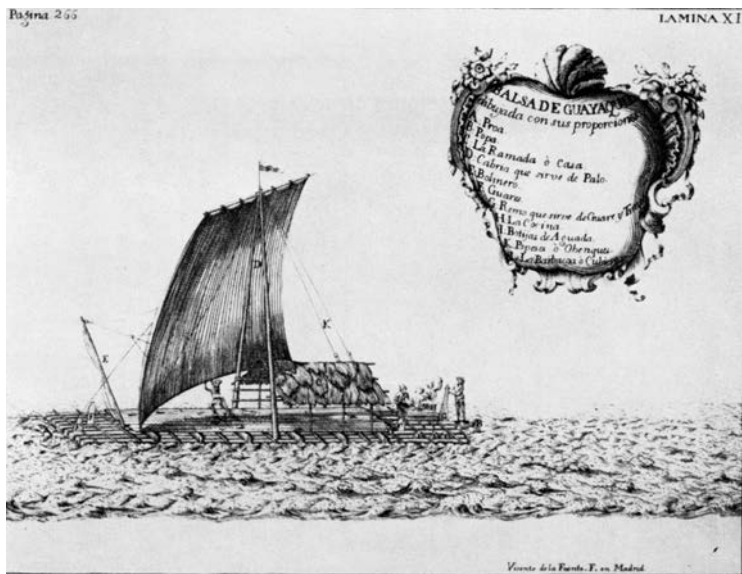 Pagina 266.
LAMINA XI
BALSA DE GUAYAQUIL
dibuxada con sus proporciones
A. Proa.
B. Popa.
C. La Ramada ò Casa.
D. Cabria que sirve de Palo.
E. Bolinero.
F. Guara.
G. Remo que sirve de Guare y
H. La Cocina.
I. Botijas de Aguada.
K. Popesa ò Obenques.
La Barbacoa ò
D
E
K
Vicente de la Fuente. F. en Madrid.